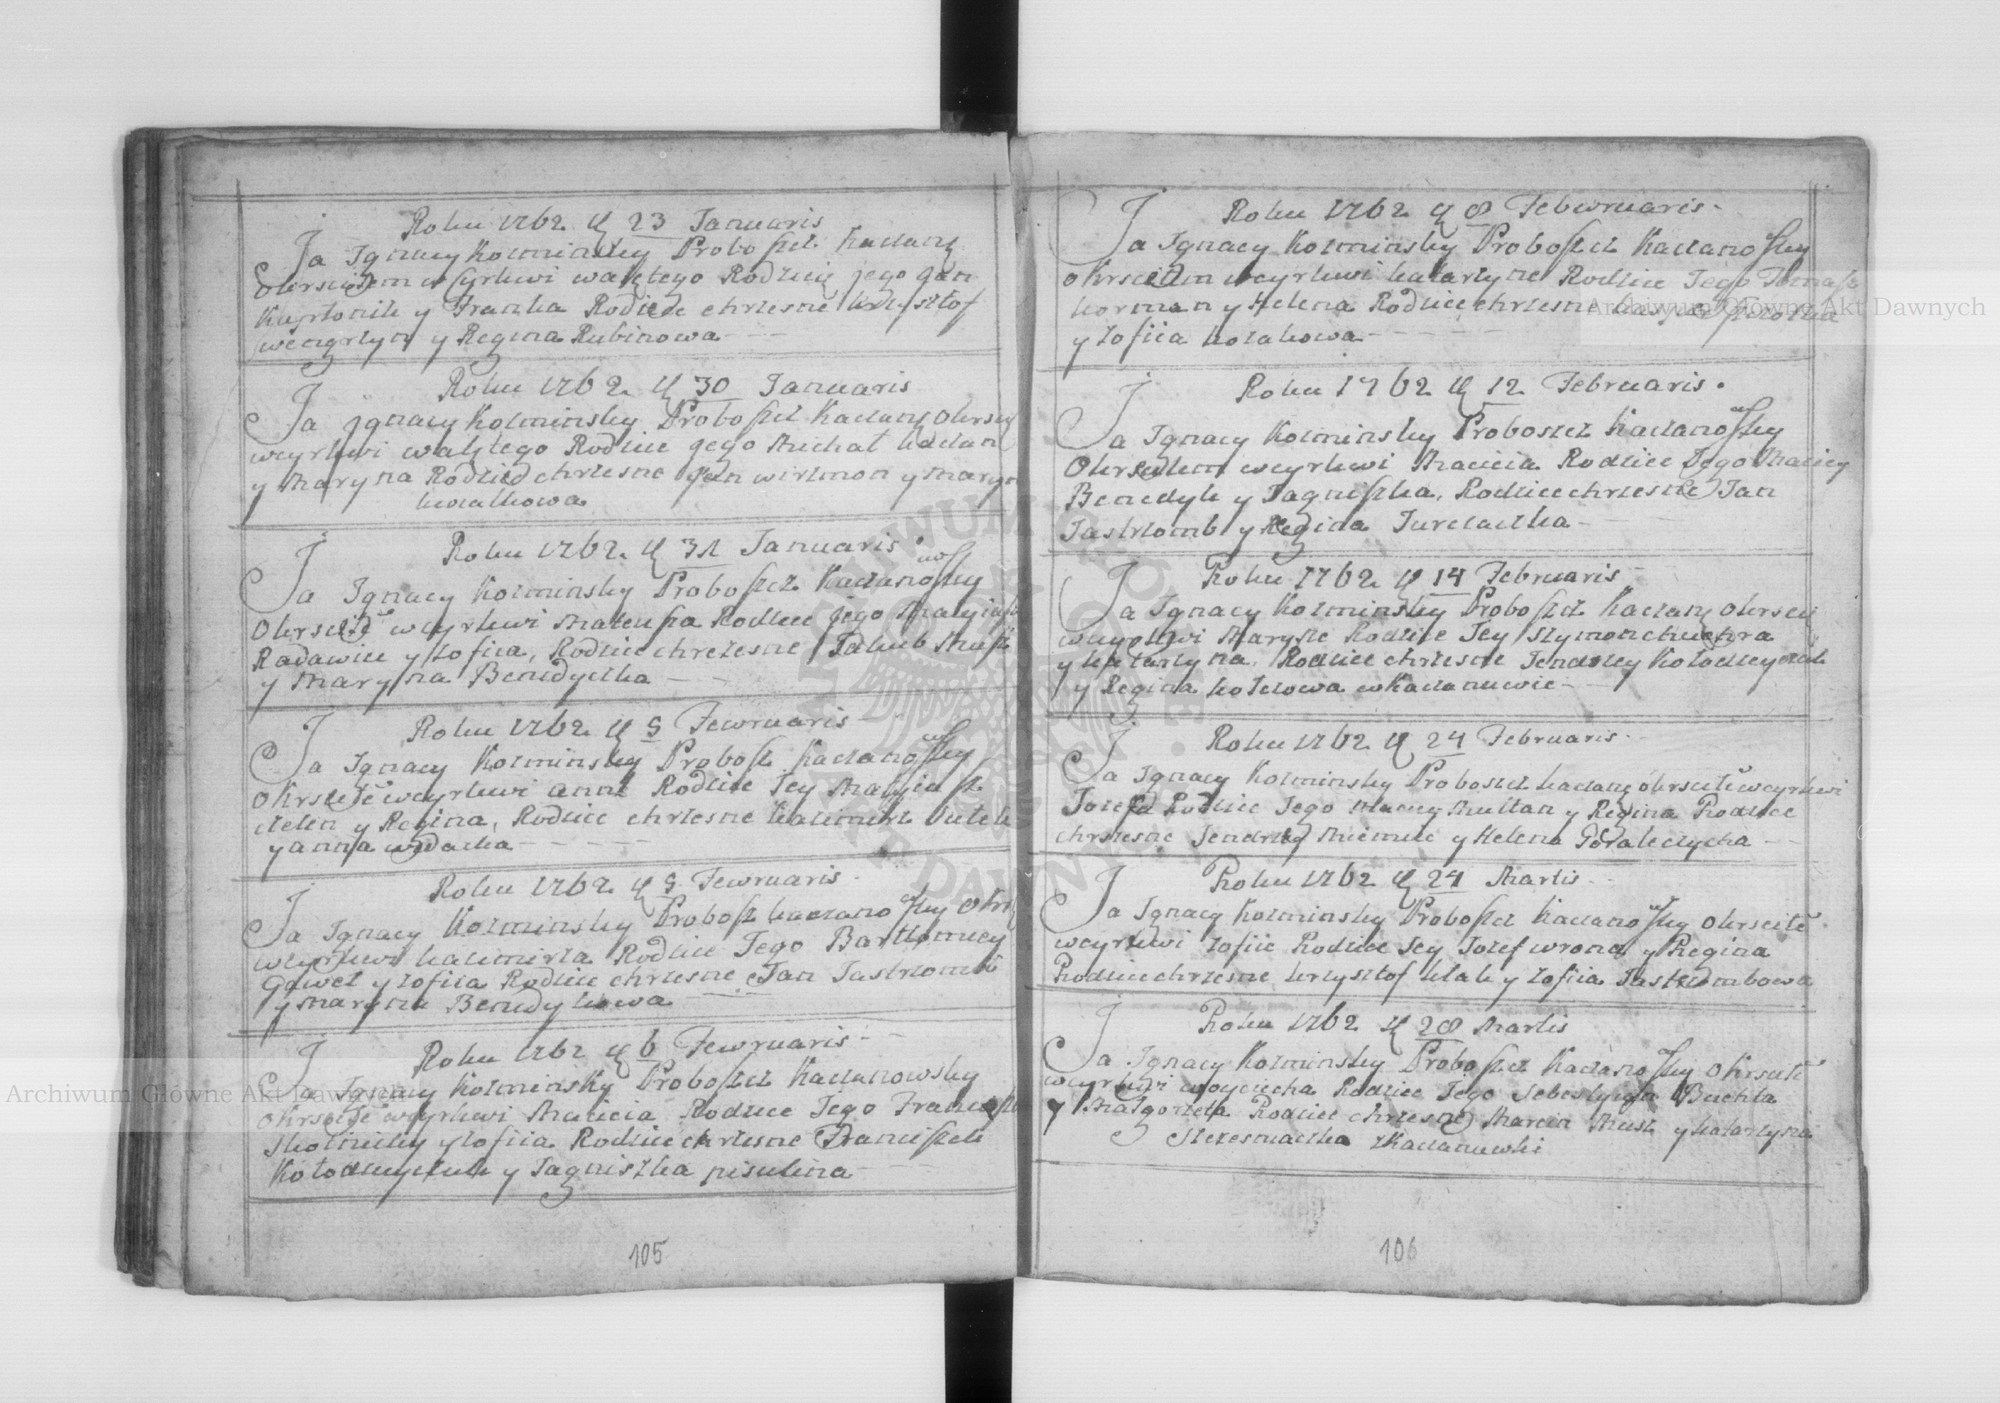 Roku 1762 d 23 Januaris
Ja Ignacy Kozminsky Proboszcz Kaczany
Okrsciłem w Cyrkwi walętego Rodzice jego jan
y Franka Rodzice chrzesne krzysztof
węngrzyn y Regina Rubinowa
Roku 1762 d 30 Januaris
Ja jgnacy Kozminsky Proboszcz Kaczany Okrsci
wcyrkwi walętego Rodzice jego Michał
y Maryna Rodzice chrzesne jan wirzmon y Maryn
kwiatkowa
Roku 1762 d 31 Januaris
Ja Ignacy Kozminsky Proboszcz Kaczanowsky
Okrsciłe wcyrkwi Mateusza Rodzice jego Matyiasz
Radawiec y zofiia, Rodzice chrzezsne Jakub
y Maryna Benedyczka
Roku 1762 d 5 Fewruaris
Ja Ignacy Kozminsky Probosz kaczanowsky
Okrsciłe wcyrkwi anne Rodzice Jey Matjiasz
y Regina, Rodzice chrzesne kazimirz
y anna
Roku 1762 d 5 Fewruaris
Ja Ignacy Kozminsky Probosz kaczanowsky Okrs
wcyrkwi kazimirza Rodzice Jego Bartłomiey
Gaweł y zofiia Rodzice chrzesne Jan Jastrzomb
y Maryna Benedykowa
Roku 1762 d 6 Fewruaris
Ja Ignacy Kozminsky Proboszcz Kaczanowsky
Okrsciłe wcyrkwi Macieia Rodzice Jego Franciszek
skotnicky y zofiia Rodzice chrzesne Franciszek
Kołodzieyczuk y Jagniszka pisulina
105
Roku 1762 d 8 Febwruaris
Ja Ignacy Kozminsky Proboszcz Kaczanowsky
Okrsciłem wcyrkwi katarzyne Rodzice Jego Tomasz
korman y Helena Rodzice chrzesne
y zofiia kozakowa
Roku 1762 d 12 Februaris
Ja Ignacy Kozminsky Proboszcz Kaczanowsky
Okrsciłem wcyrkwi Macieia Rodzice Jego Maciey
Benedyk y Jagniszka, Rodzice chrzesne Jan
Jastrzomb y Regina Jurczaczka
Roku 1762 d 14 Februaris
Ja Ignacy Kozminsky Proboszcz Kaczany Okrsci
wcyrkwi Maryne Rodzice Jey szymon
y katarzyna, Rodzice chrzesne Jendrzey Kołodzieyczuk
y Regina kotczowa
Roku 1762 d 24 Februaris
Ja Ignacy Kozminsky Proboszcz kaczany okrsciłe wcyrkwi
Jozefa Rodzice Jego Maciey Multan y Regina Rodzice
chrzesne Jendrzey Niemiec y Helena
Roku 1762 d 24 Martis
Ja Ignacy Kozminsky Proboszcz Kaczanowsky Okrsciłe
wcyrkwi zofiie Rodzice Jey Jozef wrona y Regina
Rodzice chrzesne krzysztof kłak y zofiia Jastrzombowa
Roku 1762 d 28 Martis
Ja Ignacy Kozminsky Proboszcz Kaczanowsky Okrsciłe
wcyrkwi woyciecha Rodzice Jego Sebestyian Buchta
y Małgorzeta Rodzice chrzesne Marcin y katarzyna
106
Archiwum Główne Akt Dawnych
Archiwum Główne Akt Dawnych
ARCHIWUM GŁÓWNE AKT DAWNYCH